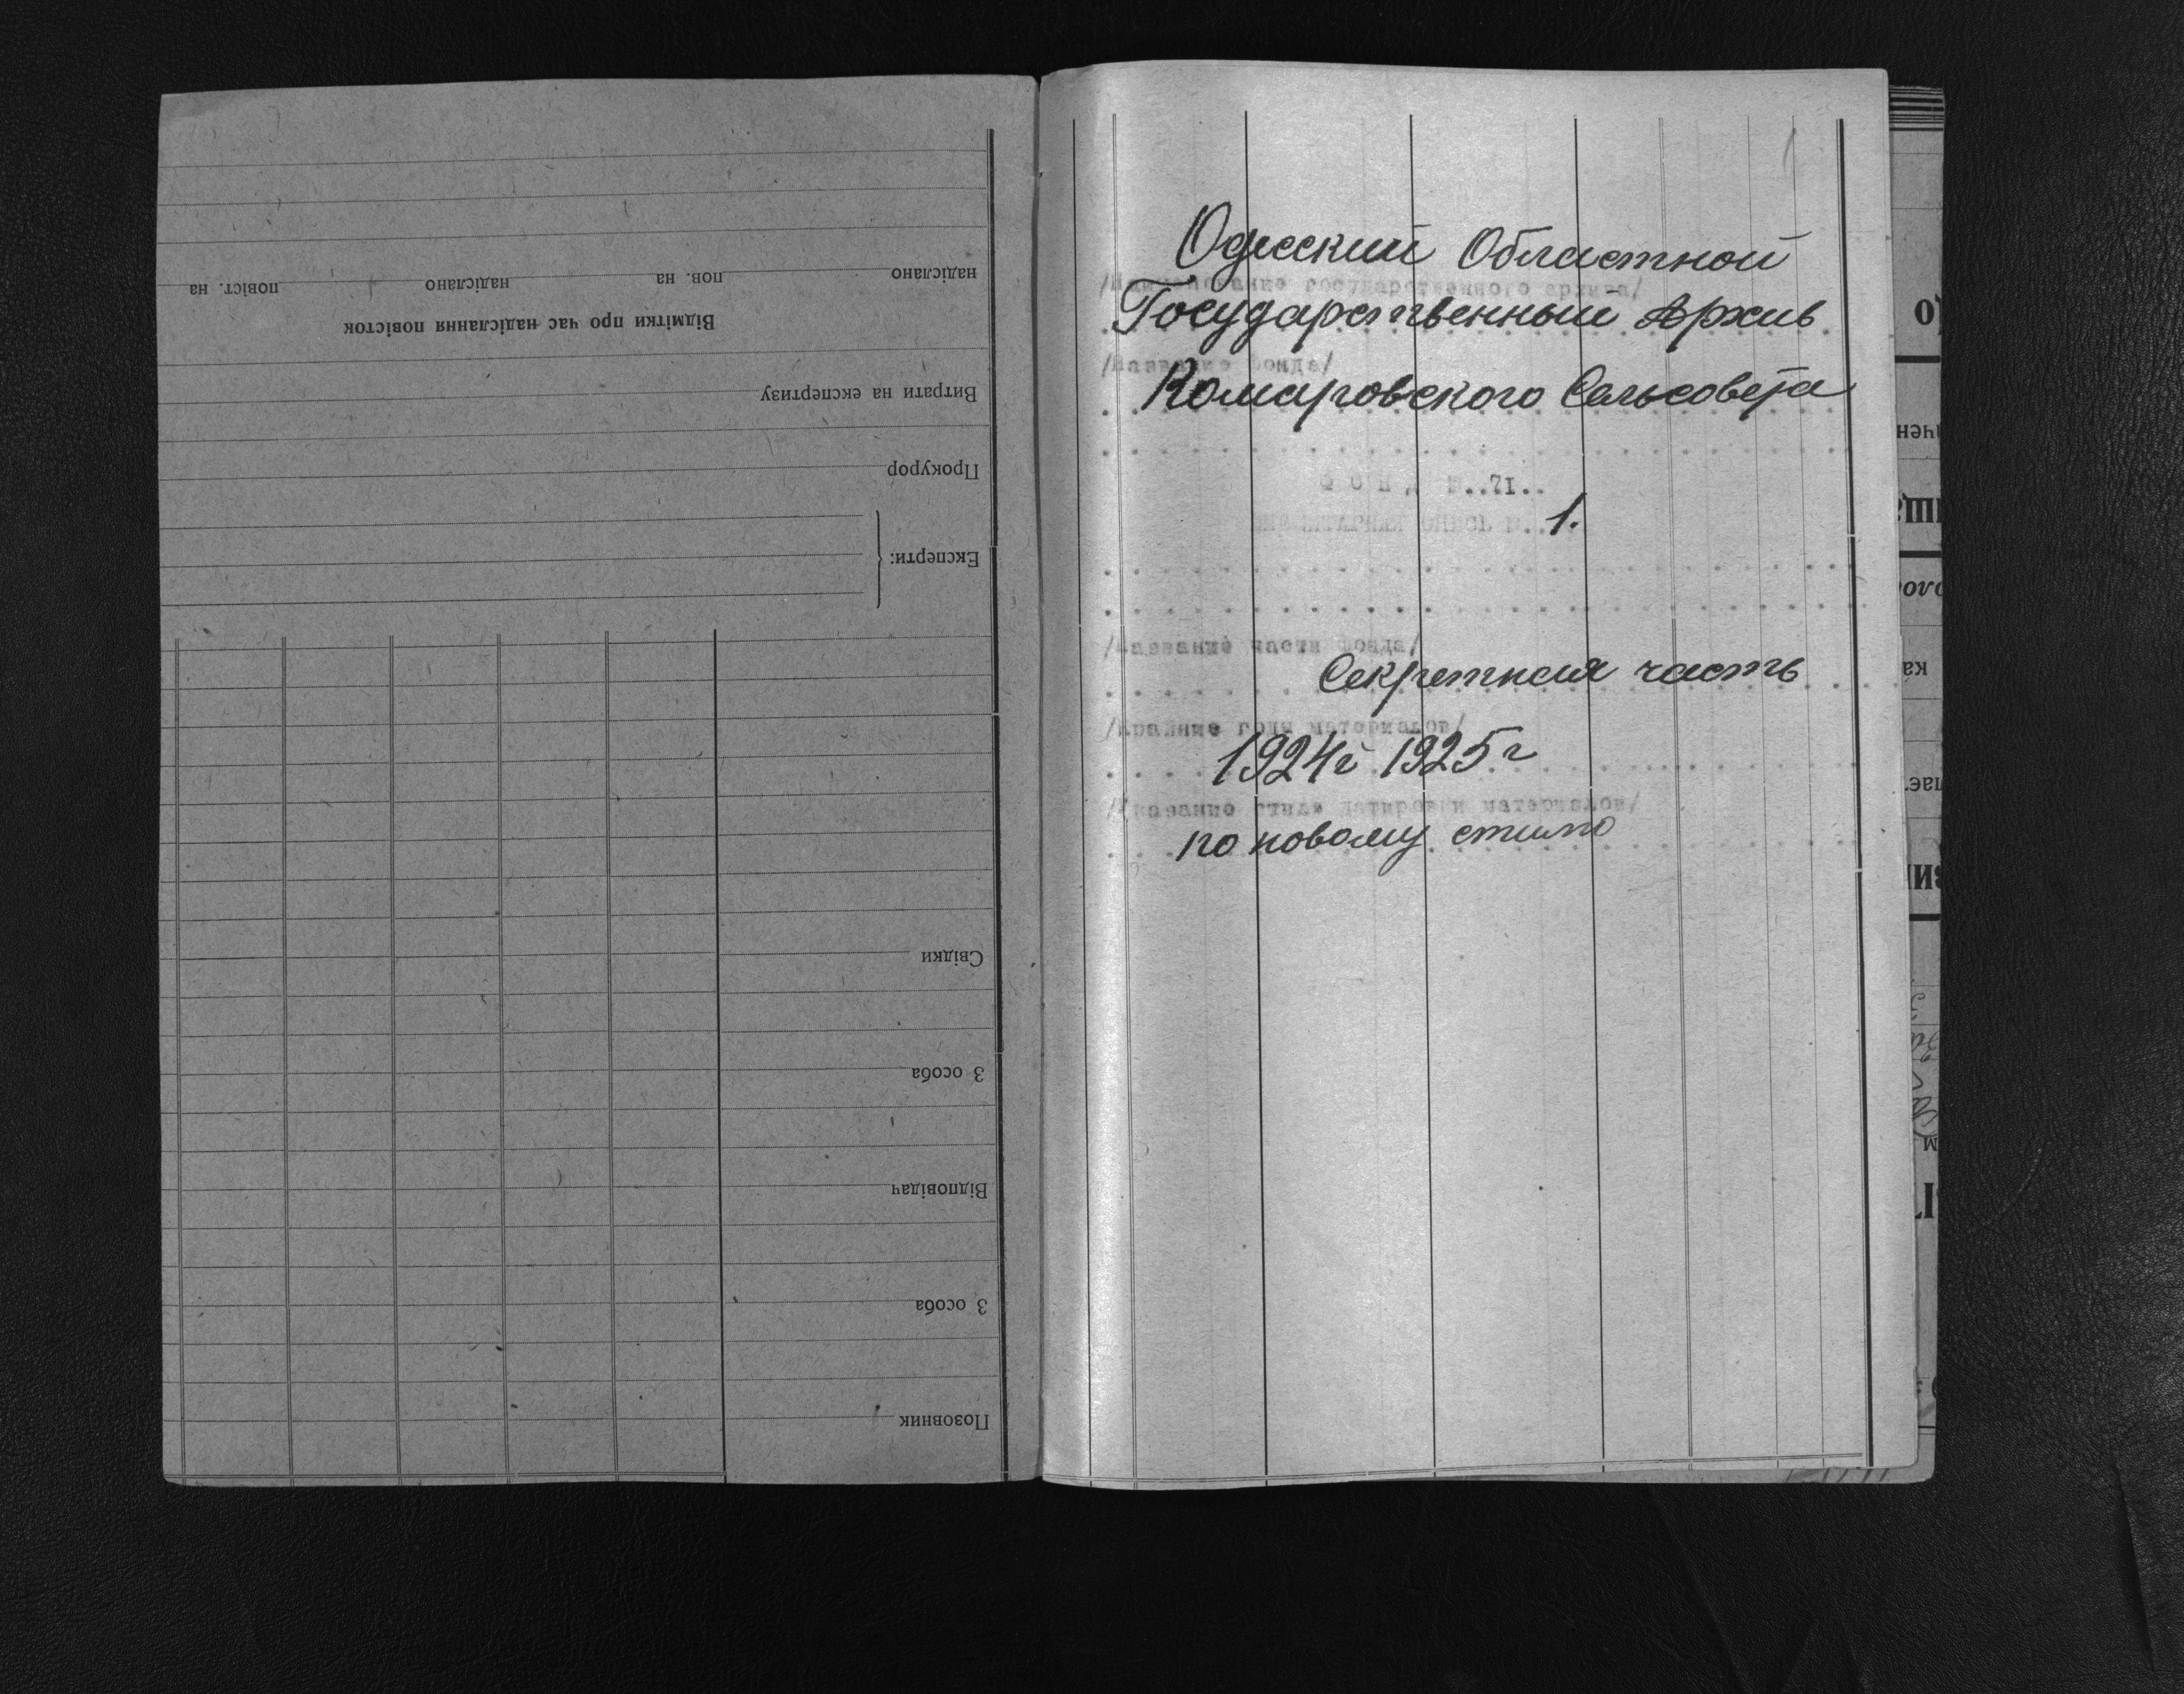 Позовник
3 особа
Відповідач
3 особа
Свідки
Експерти:
Прокурор
Витрати на експертизу
Відмітки про час надіслання повісток
надіслано пов. на надіслано повіст. на
Одесский Областной
/Наименование государственного архива/
Государственный Архив
/Название фонда/
Комаровского Сельсовета
Фонд №..71..
ИНВЕНТАРНАЯ ОПИСЬ №..1.
/Название части фонда/
Секретная часть
/Крайние годы материалов/
1924г 1925г
/Указание стиля датировки материалов/
по новому стилю